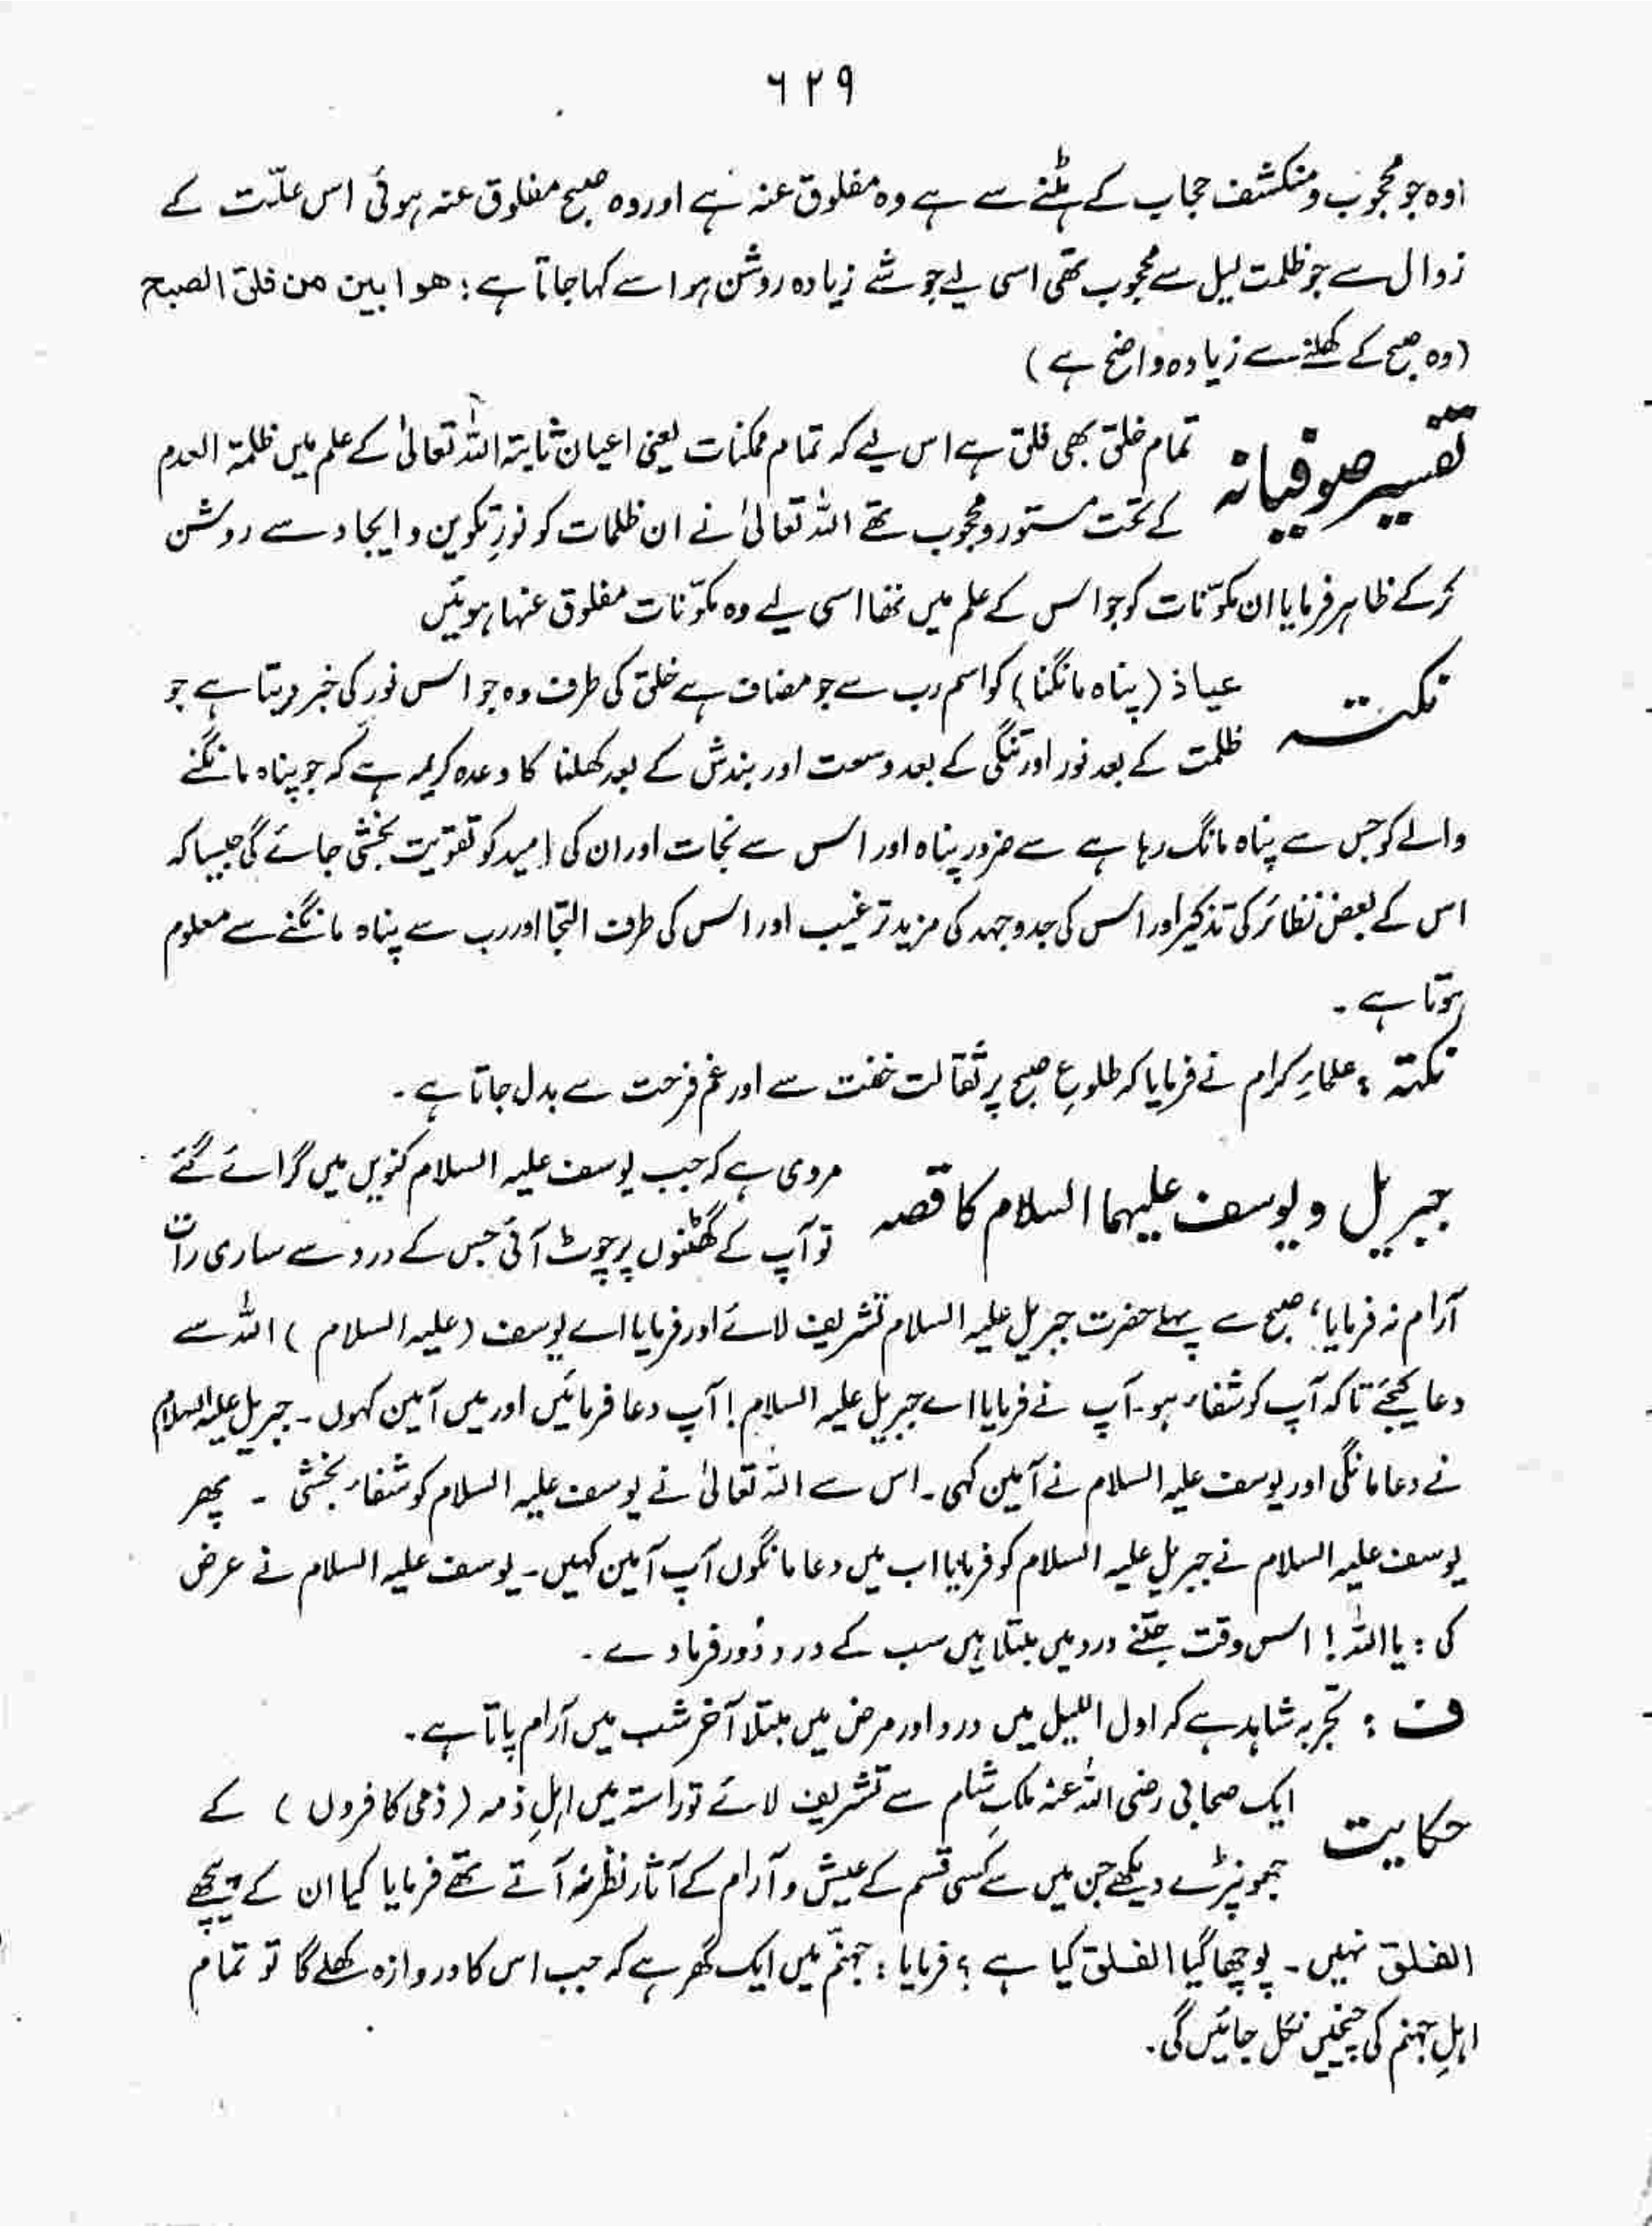 ۶۲۹
اوہ جو محجوب و منکشف حجاب کے ہٹنے سے ہے وہ مفلوق عنہ ہے اور وہ صبح مفلوق عنہ ہوئی اس علّت کے
زوال سے جو ظلمت لیل سے محجوب تھی اسی لیے جو شے زیادہ روشن ہو اسے کہا جاتا ہے : ھو ابین من فلق الصبح
(وہ صبح کے کھلنے سے زیادہ واضح ہے)
تفسیر صوفیانہ تمام خلق بھی فلق ہے اس لیے کہ تمام ممکنات یعنی اعیان ثابتہ اللہ تعالیٰ کے علم میں ظلمۃ العدم
کے تحت مستور و محجوب تھے اللہ تعالیٰ نے ان ظلمات کو نورِ تکوین و ایجاد سے روشن
کر کے ظاہر فرمایا ان مکوّنات کو جو اس کے علم میں تھا اسی لیے وہ مکوّنات مفلوق عنہا ہوئیں
نکتہ عیاذ (پناہ مانگنا) کو اسم رب سے جو مضاف ہے خلق کی طرف وہ جو اس نور کی خبر دیتا ہے جو
ظلمت کے بعد نور اور تنگی کے بعد وسعت اور بندش کے بعد کھلنا کا وعدہ کریمہ ہے کہ جو پناہ مانگنے
والے کو جس سے پناہ مانگ رہا ہے سے ضرور پناہ اور اس سے نجات اور ان کی امید کو تقویت بخشی جائے گی جیسا کہ
اس کے بعض نظائر کی تذکیر اور اس کی جدوجہد کی مزید ترغیب اور اس کی طرف التجا اور رب سے پناہ مانگنے سے معلوم
ہوتا ہے ۔
نکتہ : علماءِ کرام نے فرمایا کہ طلوعِ صبح پر ثقالت خفت سے اور غم فرحت سے بدل جاتا ہے ۔
جبریل و یوسف علیہما السلام کا قصہ مروی ہے کہ جب یوسف علیہ السلام کنویں میں گرائے گئے
تو آپ کے گھٹنوں پر چوٹ آئی جس کے درد سے ساری رات
آرام نہ فرمایا ، صبح سے پہلے حضرت جبریل علیہ السلام تشریف لائے اور فرمایا اے یوسف (علیہ السلام) اللہ سے
دعا کیجئے تاکہ آپ کو شفاء ہو۔ آپ نے فرمایا اے جبریل علیہ السلام ! آپ دعا فرمائیں اور میں آمین کہوں ۔ جبریل علیہ السلام
نے دعا مانگی اور یوسف علیہ السلام نے آمین کہی ۔ اس سے اللہ تعالیٰ نے یوسف علیہ السلام کو شفاء بخشی ۔ پھر
یوسف علیہ السلام نے جبریل علیہ السلام کو فرمایا اب میں دعا مانگوں آپ آمین کہیں ۔ یوسف علیہ السلام نے عرض
کی : یا اللہ ! اس وقت جتنے درد میں مبتلا ہیں سب کے درد دُور فرما دے ۔
ف : تجربہ شاہد ہے کہ اول اللیل میں درد اور مرض میں مبتلا آخر شب میں آرام پاتا ہے ۔
حکایت ایک صحابی رضی اللہ عنہ ملکِ شام سے تشریف لائے تو راستہ میں اہلِ ذمہ (ذمی کافروں) کے
جھونپڑے دیکھے جن میں سے کسی قسم کے عیش و آرام کے آثار نظر نہ آتے تھے فرمایا کیا ان کے پیچھے
الفلق نہیں ۔ پوچھا گیا الفلق کیا ہے ؟ فرمایا : جہنّم میں ایک گھر ہے کہ جب اس کا دروازہ کھلے گا تو تمام
اہلِ جہنم کی چیخیں نکل جائیں گی ۔